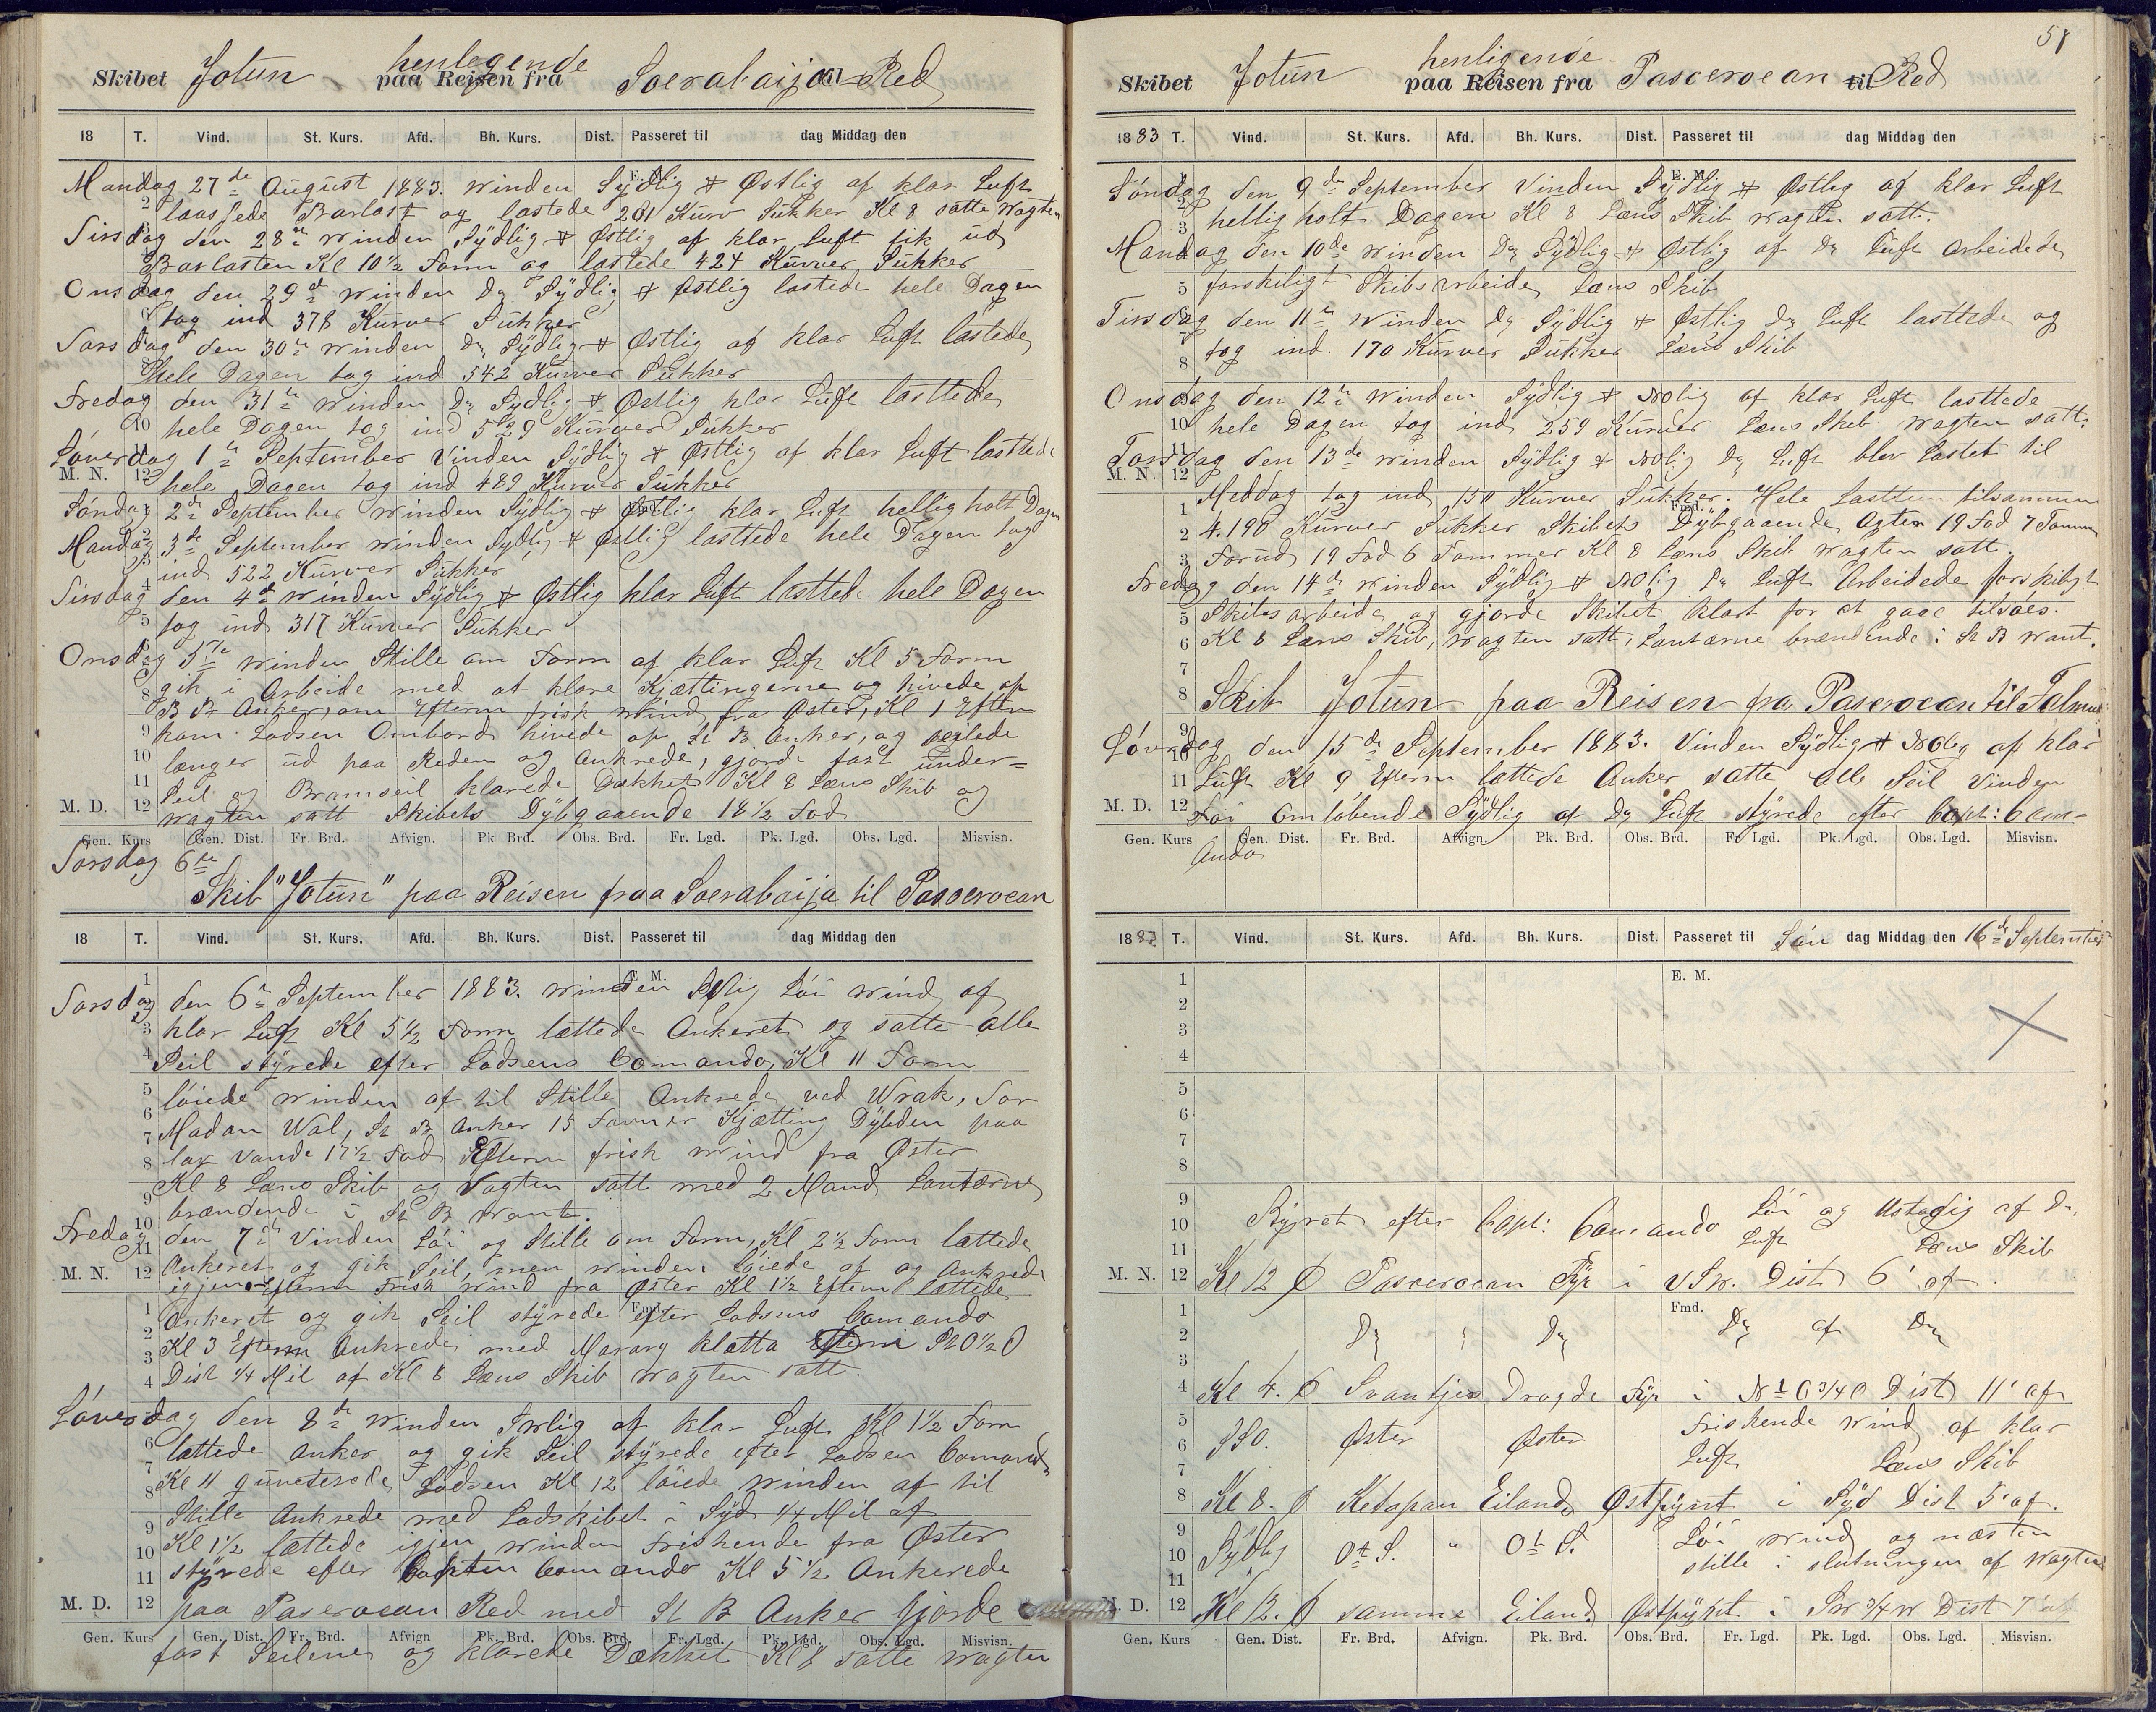 Skibet Jotun henlegende paa Reisen fra Soerabaija til Red
18 T. Vind. St. Kurs. Afd. Bh. Kurs. Dist. Passeret til dag Middag den
E. M.
Mandag 27de August 1883. winden Sÿdlig & Østlig af klar Luft
laassede Barlast og lastede 281 Kurv Sukker Kl 8 satte wagten
Tirsdag den 28de winden Sÿdlig & Østlig af klar Luft fik ud
Barlasten Kl 10½ Form og lastede 424 Kurver Sukker
Onsdag den 29de winden Do Sÿdlig & Østlig lastede hele Dagen
tog ind 378 Kurver Sukker
Torsdag den 30te winden Do Sÿdlig & Østlig af klar Luft lastede
hele Dagen tog ind 542 Kurver Sukker
Fredag den 31te winden Do Sÿdlig & Østlig klar Luft lasttede
hele Dagen tog ind 529 Kurver Sukker
Løverdag 1te September Vinden Sÿdlig & Østlig af klar Luft lasttede
M. N. 12 hele Dagen tog ind 489 Kurver Sukker
Søndag 2de September winden Sÿdlig & Østlig klar Luft hellig holt Dagen
Mandag 3de September winden Sÿdlig & Østlig lasttede hele Dagen tog
ind 522 Kurver Sukker
Tirsdag den 4de winden Sÿdlig & Østlig klar Luft lasttede hele Dagen
tog ind 317 Kurver Sukker
Onsdag 5te winden Stille om Form af klar Luft Kl 5 Form
gik i Arbeide med at klare Kjættingerne og hivede op
B B Anker, om Efterm frisk wind fra Øster, Kl 1 Efterm
kom Lodsen Ombord hivede op St B Anker, og seilede
længer ud paa Reden og Ankrede, gjorde fast under=
Seil og Bramseil klarede Dækket Kl 8 Læns Skib og
M. D. 12 wagten satt Skibets Dÿbgaaende 18½ Fod
Gen. Kurs Gen. Dist. Fr. Brd. Afvign. Pk Brd. Obs. Brd. Fr. Lgd. Pk. Lgd. Obs. Lgd. Misvisn.
Torsdag 6te
Skib "Jotun" paa Reisen fraa Soerabaija til Passeroean
18 T. Vind. St. Kurs. Afd. Bh. Kurs. Dist. Passeret til dag Middag den
E. M.
Torsdag den 6te September 1883. winden Løi wind af
klar Luft Kl 5½ Form lættede Ankeret og satte alle
Seil stÿrede efter Lodsens Comando, Kl 11 Form
løiede winden af til Stille Ankrede ved Wrak, for
Madan Wal, St B Anker 15 Favner Kjætting Dÿbden paa
lav Vande 17½ Fod Efterm frisk wind fra Øster
Kl 8 Læns Skib og Vagten satt med 2 Mand Lantærne
brændende i St B want.
Fredag den 7de Vinden Løi og Stille om Form, Kl 2½ Form lættede
Ankeret og gik Seil, men winden løiede af og Ankrede
M. N. 12 igjen Efterm Frisk wind fra Øster Kl 1½ Efterm lættede
Fmd.
Ankeret og gik Seil stÿrede efter Lodsens Comando
Kl 3 Efterm Ankrede med Marang klatta i StO½O
Dist ¼ Mil af Kl 8 Læns Skib wagten satt.
Løverdag den 8de winden af klar Luft Kl 1½ Form
lættede Anker og gik Seil stÿrede efter Lodsen Comando
Kl 11 quveterede Lodsen Kl 12 løiede winden af til
Stille Ankrede med Lodskibet i Sÿd ¼ Mil af
Kl 1½ lættede igjen winden friskende fra Øster
stÿrede efter Capten Comando Kl 5½ Ankerede
M. D. 12 paa Paseroean Red med St B Anker Gjorde
Gen. Kurs Gen. Dist. Fr. Brd. Afvign Pk. Brd. Obs. Brd. Fr. Lgd. Pk. Lgd. Obs. Lgd. Misvisn.
fast Seilene og klarede Dækket Kl 8 satte wagten
Skibet Jotun henligende paa Reisen fra Pasceroean til Red
1883 T. Vind. St. Kurs. Afd. Bh. Kurs. Dist. Passeret til dag Middag den
E. M.
Søndag den 9de September Vinden Sÿdlig & Østlig af klar Luft
hellig holt Dagen Kl 8 Læns Skib wagten satt.
Mandag den 10de winden Do Sÿdlig & Østlig af Do Luft Arbeidede
forskiligt Skibsarbeide, Læns Skib
Tirsdag den 11te winden Do Sÿdlig & Østlig Do Luft lasttede og
tog ind 170 Kurver Sukker Læns Skib
Onsdag den 12te winden Sÿdlig & NOlig af klar Luft lasttede
hele Dagen tog ind 259 Kurver Læns Skib wagten satt.
Torsdag den 13de winden Sÿdlig & NOlig Do Luft blev Lastet til
M. N. 12
Meddag tog ind 150 Kurver Sukker. Hele Lasttun tilsammen
Fmd.
4.190 Kurver Sukker Skibets Dÿbgaaende Agter 19 Fod 7 Tommer
Forud 19 Fod 6 Tommer Kl 8 Læns Skib wagten satt.
Fredag den 14de winden Sÿdlig & NOlig Do Luft Arbeidede forskiligt
Skibsarbeide og gjorde Skibet klart for at gaae tilsøes.
Kl 8 Læns Skib, wagten satt, Lantærne brændende i St B want.
Skib Jotun paa Reisen fra Paseroean til Falmut
Løverdag den 15de September 1883. Vinden Sÿdlig & NOlig af klar
Luft Kl 9 Efterm lættede Anker satte alle Seil Vinden
M. D. 12 Løi Omløbende Sÿdlig af Do Luft stÿrede efter Capt: Com-
Gen. Kurs Gen. Dist. Fr. Brd. Afvign. Pk. Brd. Obs. Brd. Fr Lgd. Pk. Lgd. Obs. Lgd. Misvisn.
ando
1883. T. Vind. St. Kurs. Afd. Bh. Kurs. Dist. Passeret til Søn dag Middag den 16de September
E. M.
Stÿret efter Capt: Comando Løi og Ustadig af Do.
Luft Læns Skib
M. N. 12 Kl 12 Ø Pasceroean Fÿr i VSw. Dist 6' af.
Fmd.
Do Do Do af Do
Kl 4. Ø Svantjes Drogde Fÿr i Dist 11' af
SSO. Øster Øster Friskende wind af klar
Luft Læns Skib
Kl 8. Ø Ketapan Eiland Østpÿnt i Sÿd Dist 5' af.
Sÿdlig Ot S. " Ot S. Løi wind og næsten
stille i slutningen af wagten
M. D. 12 Kl 12. Ø samme Eiland Østpÿnt i Sw ¾ w Dist 7' af
Gen. Kurs Gen. Dist. Fr. Brd. Afvign. Pk. Brd. Obs. Brd. Fr. Lgd. Pk. Lgd. Obs. Lgd. Misvisn.